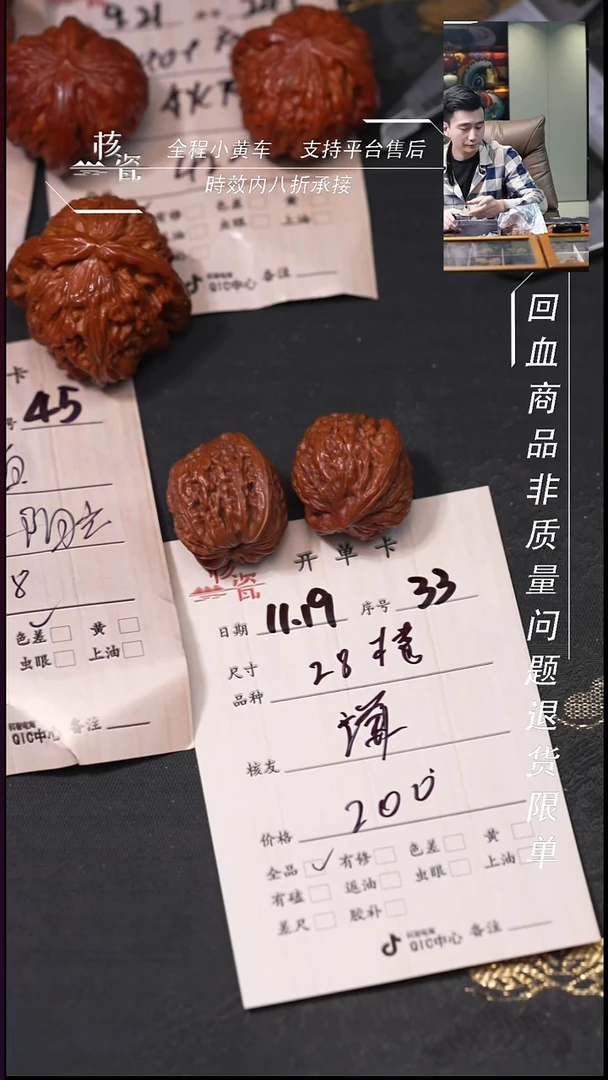 9.21
核瓷
全程小黄车 支持平台售后
時效内八折承接
有修 色差 黄
虫眼 上油
QIC中心 备注
回血商品非质量问题退货限单
卡
号 45
8
色差 黄
虫眼 上油
QIC中心 备注
核瓷 开单卡
日期 11.19 序号 33
尺寸 28
品种
核友
价格 200
全品 ✓ 有修 色差 黄
有磕 返油 虫眼 上油
差尺 胶补
抖音电商
QIC中心 备注